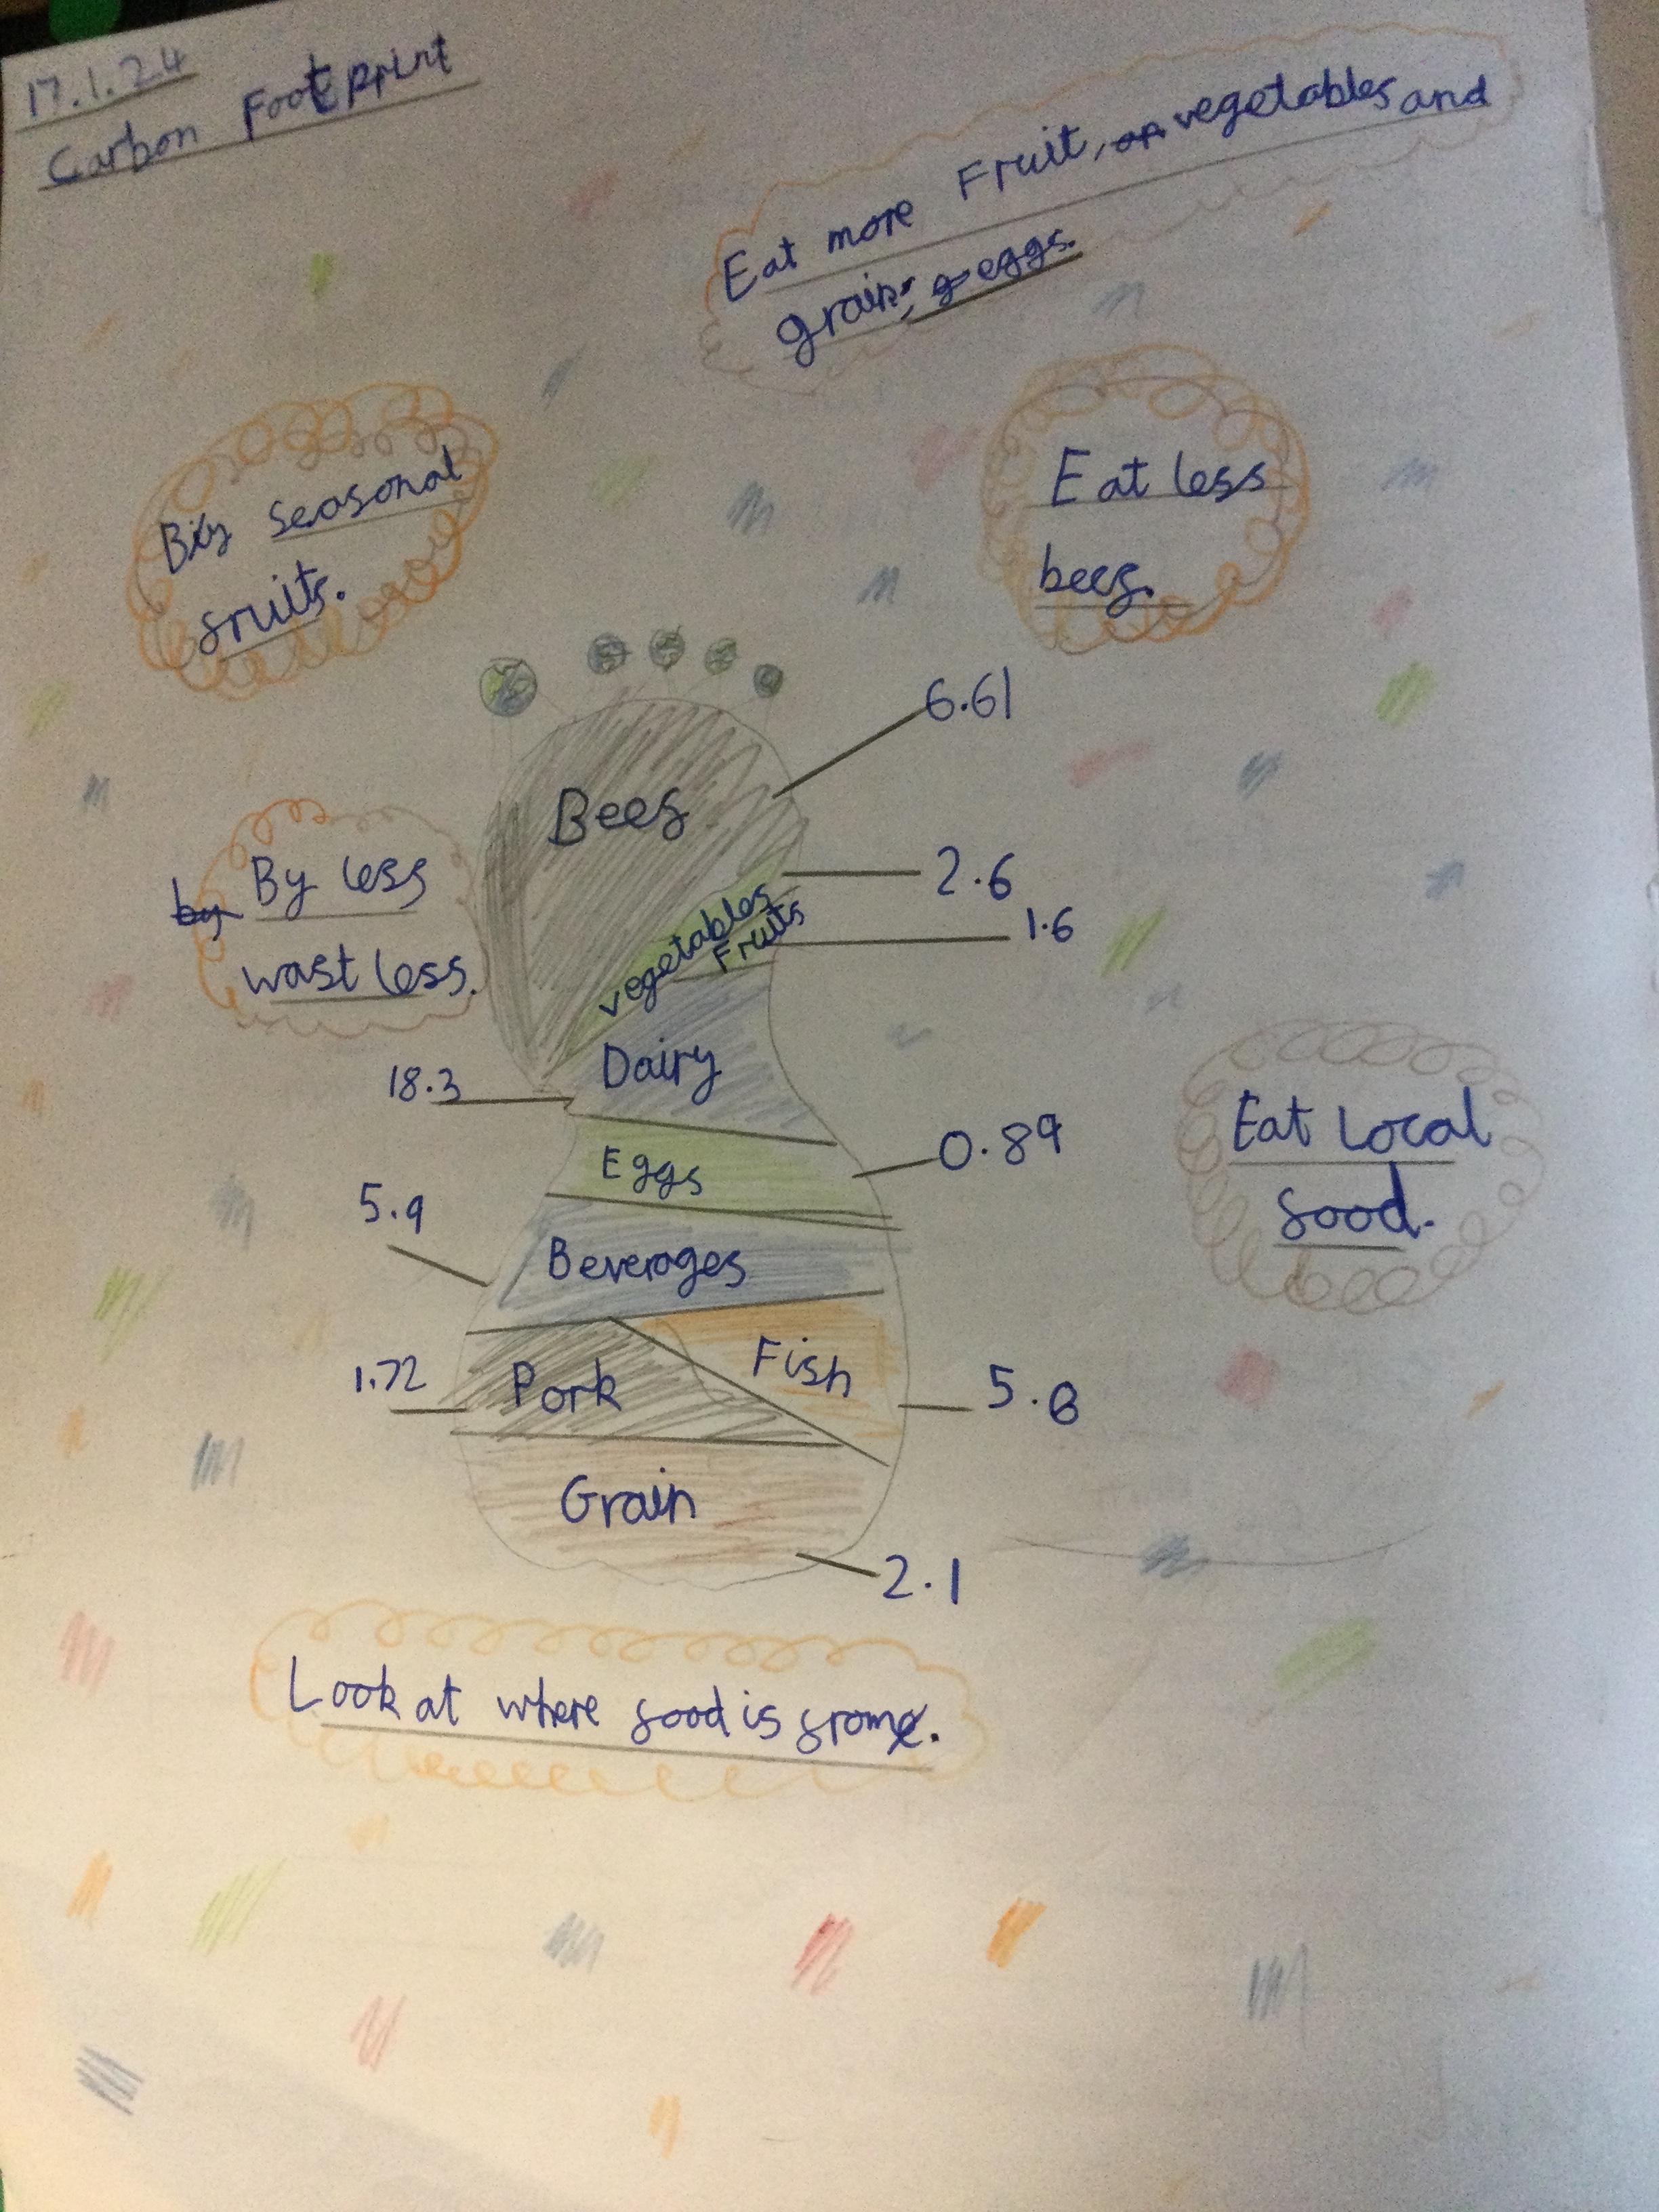 17.1.24
Carbon Footprint
Eat more Fruit, or vegetables and
grain, g eggs.
Buy seasonal
fruits.
Eat less
beef.
6.61
Beef
by By less
wast less.
2.6
1.6
vegetables
Fruits
18.3
Dairy
0.89
Eggs
5.9
Beverages
Eat Local
food.
1.72
Pork
Fish
5.8
Grain
2.1
Look at where food is from.